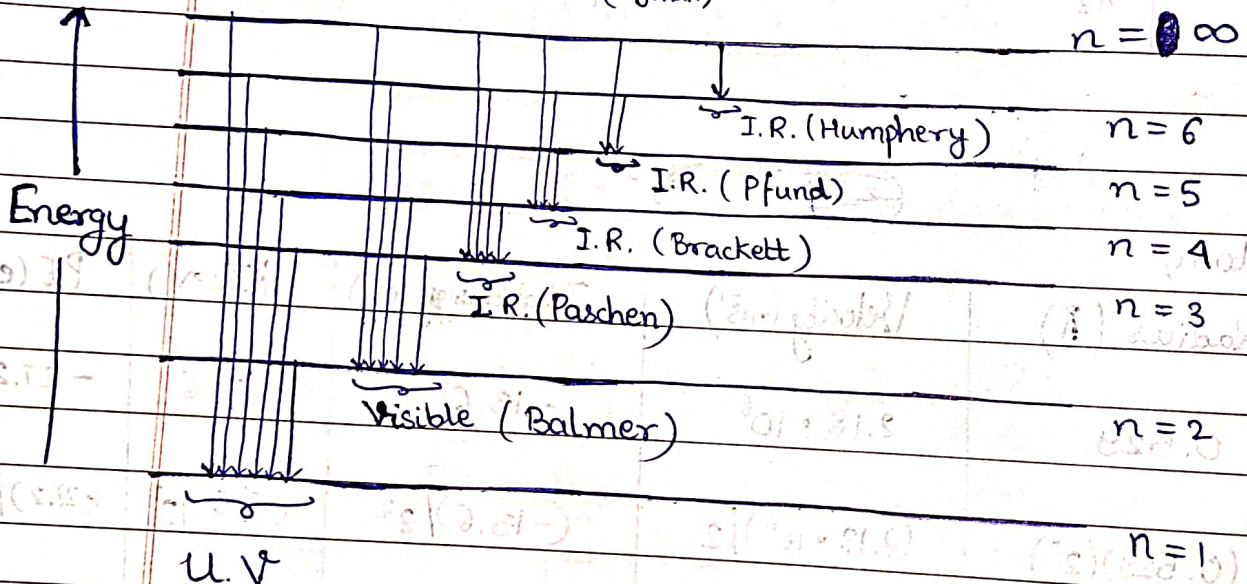 n = ∞
I.R. (Humphery)
n = 6
I.R. (Pfund)
n = 5
Energy
I.R. (Brackett)
n = 4
I.R. (Paschen)
n = 3
Visible (Balmer)
n = 2
n = 1
U.V